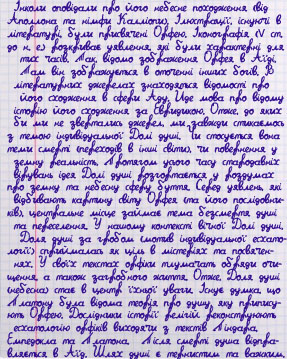 Інколи оповідали про його небесне походження від
Аполлона та німфи Калліопи. Ілюстрації, існуючі в
літературі, були присвячені Орфею. Іконографія (V ст.
до н. е.) розкриває уявлення, які були характерні для
тих часів. Так, відомо зображення Орфея в Аїді.
Там він зображується в оточенні інших богів. В
літературних джерелах знаходяться відомості про
його сходження в сферу Аду. Йде мова про відому
історію його сходження за Еврідикою. Отже, до яких
би ми не звертались джерел, ми завжди стикаємось
з темою індивідуальної Долі душі. Чи стосується вона
теми смерті (переходів в інші світи), чи повернення у
земну реальність. Протягом усього часу стародавніх
вірувань ідея Долі душі розгортається у роздумах
про земну та небесну сферу буття. Серед уявлень, які
відбивають картину світу Орфея (та його послідовни-
ків), центральне місце займає тема безсмертя душі
та переселення. У нашому контексті вічної Долі душі.
Доля душі за гробом (мотив індивідуальної есхато-
логії) сприймалась як ціль в містеріях та посвячен-
нях. У своїх текстах орфіки тлумачать обряди очи-
щення, а також загробного життя. Отже, Доля душі
(небесна) стає в центр їхньої уваги. Існує думка, що
Платону була відома теорія про душу, яку припису-
ють Орфею. Дослідники історії релігій реконструюють
есхатологію орфіків виходячи з текстів Піндара,
Емпедокла та Платона. Після смерті душа відправ-
вляється в Аїд. Шлях душі є тернистим та важким,